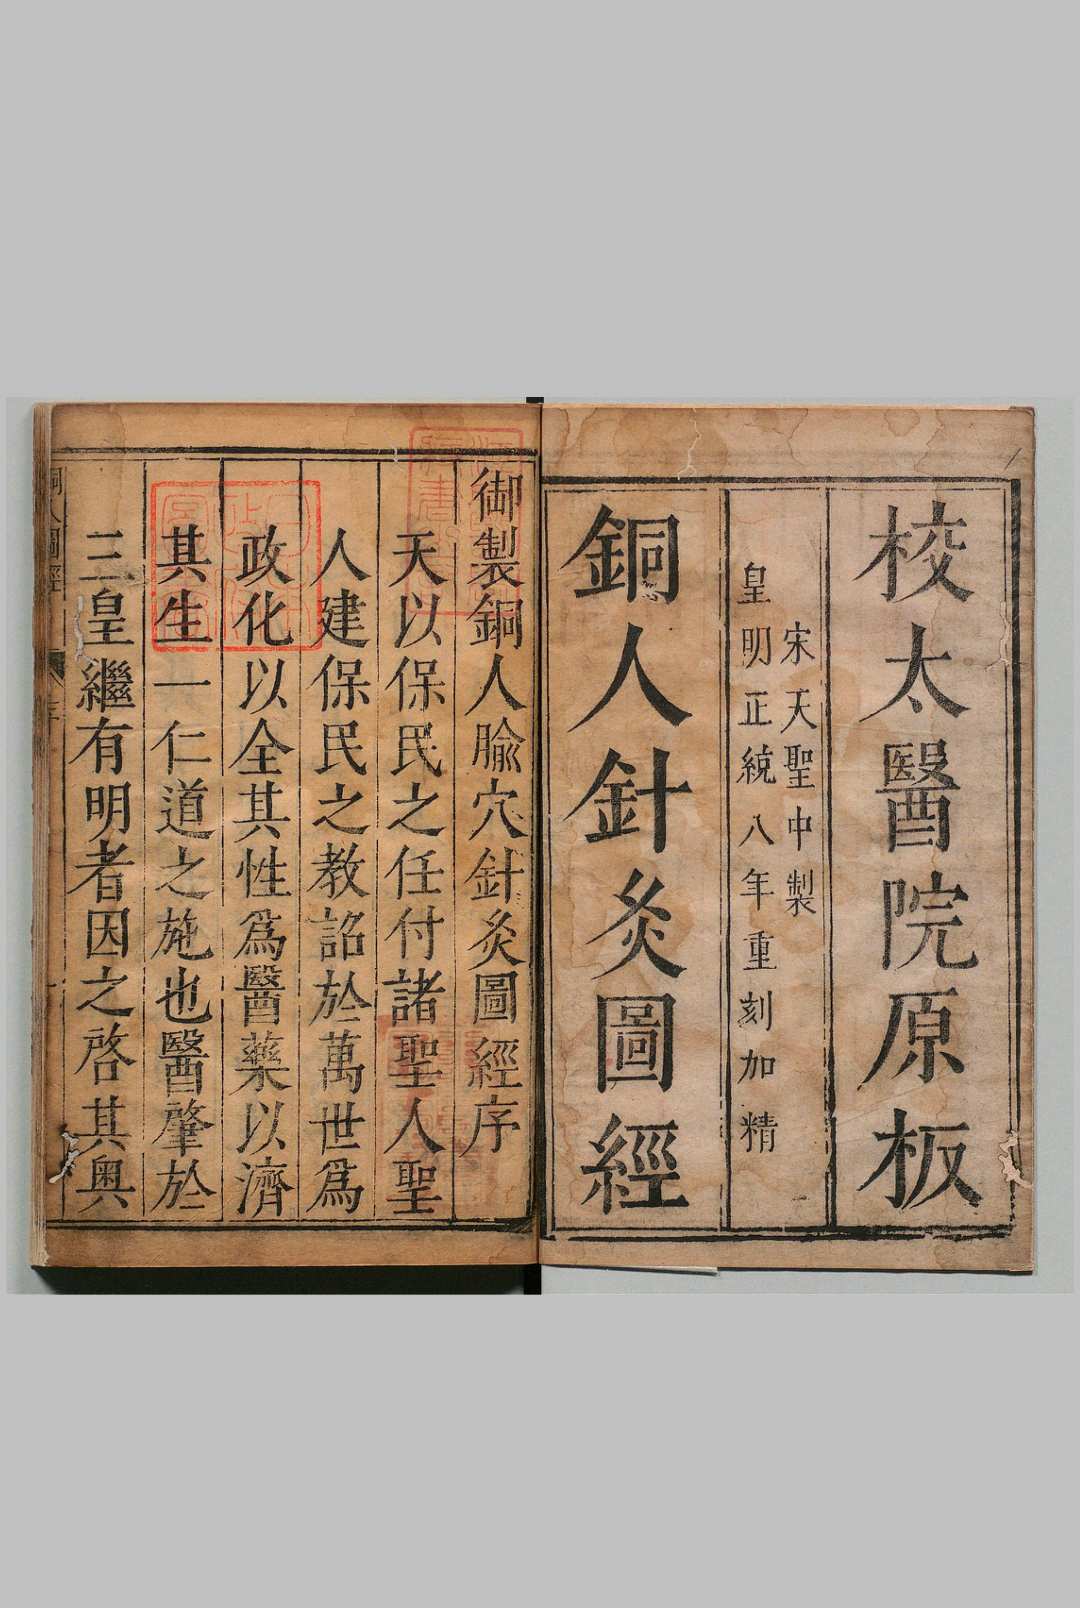 校太醫院原板
宋天聖中製
皇明正統八年重刻加精
銅人針灸圖經
御製銅人腧穴針灸圖經序
天以保民之任付諸聖人聖
人建保民之教詔於萬世爲
政化以全其性爲醫藥以濟
其生一仁道之施也醫肇於
三皇繼有明者因之啓其奥